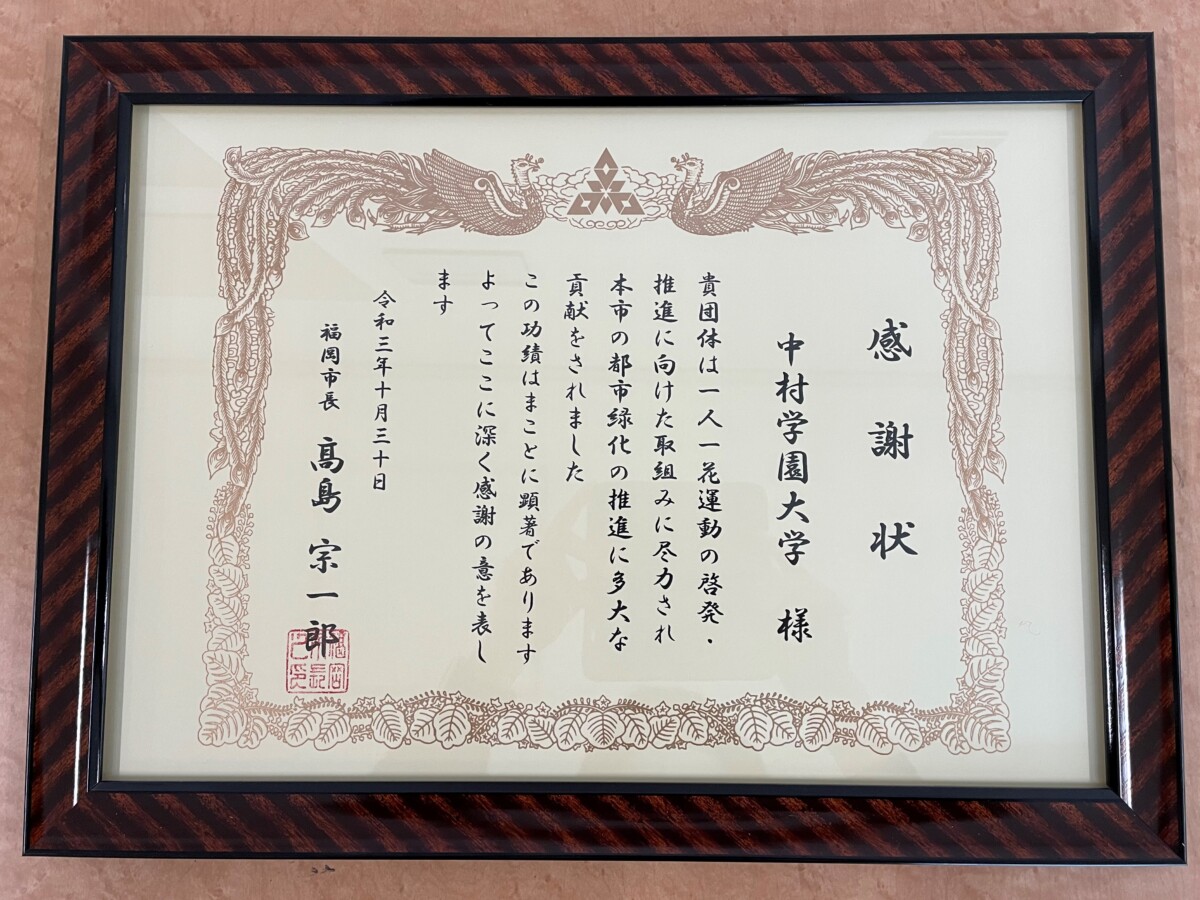 感謝状
中村学園大学 様
貴団体は一人一花運動の啓発・
推進に向けた取組みに尽力され
本市の都市緑化の推進に多大な
貢献をされました
この功績はまことに顕著であります
よってここに深く感謝の意を表し
ます
令和三年十月三十日
福岡市長 髙島 宗一郎
福岡市長之印